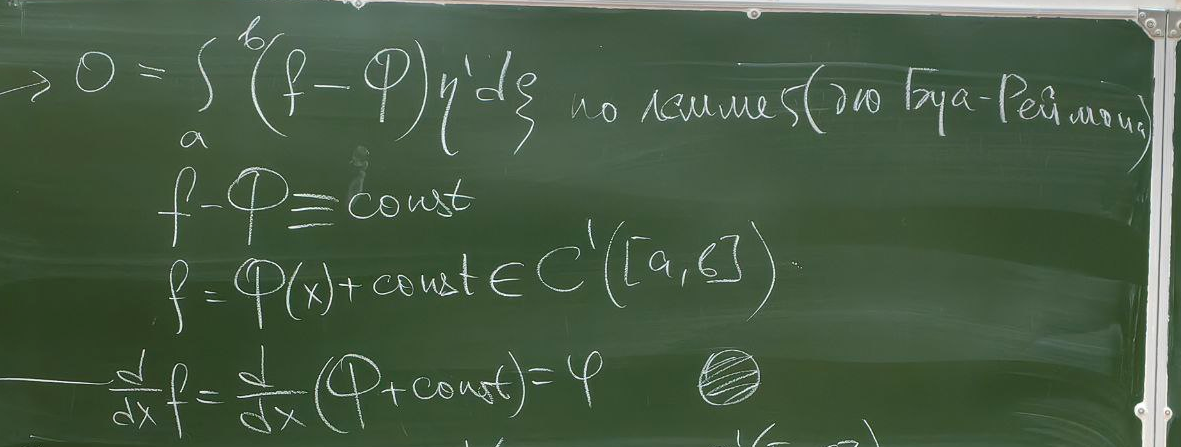 → 0 = ∫_a^b (f - Φ) η' dξ по лемме (дю Буа-Реймона)
f - Φ ≡ const
f = Φ(x) + const ∈ C'([a, b])
d/dx f = d/dx (Φ + const) = φ